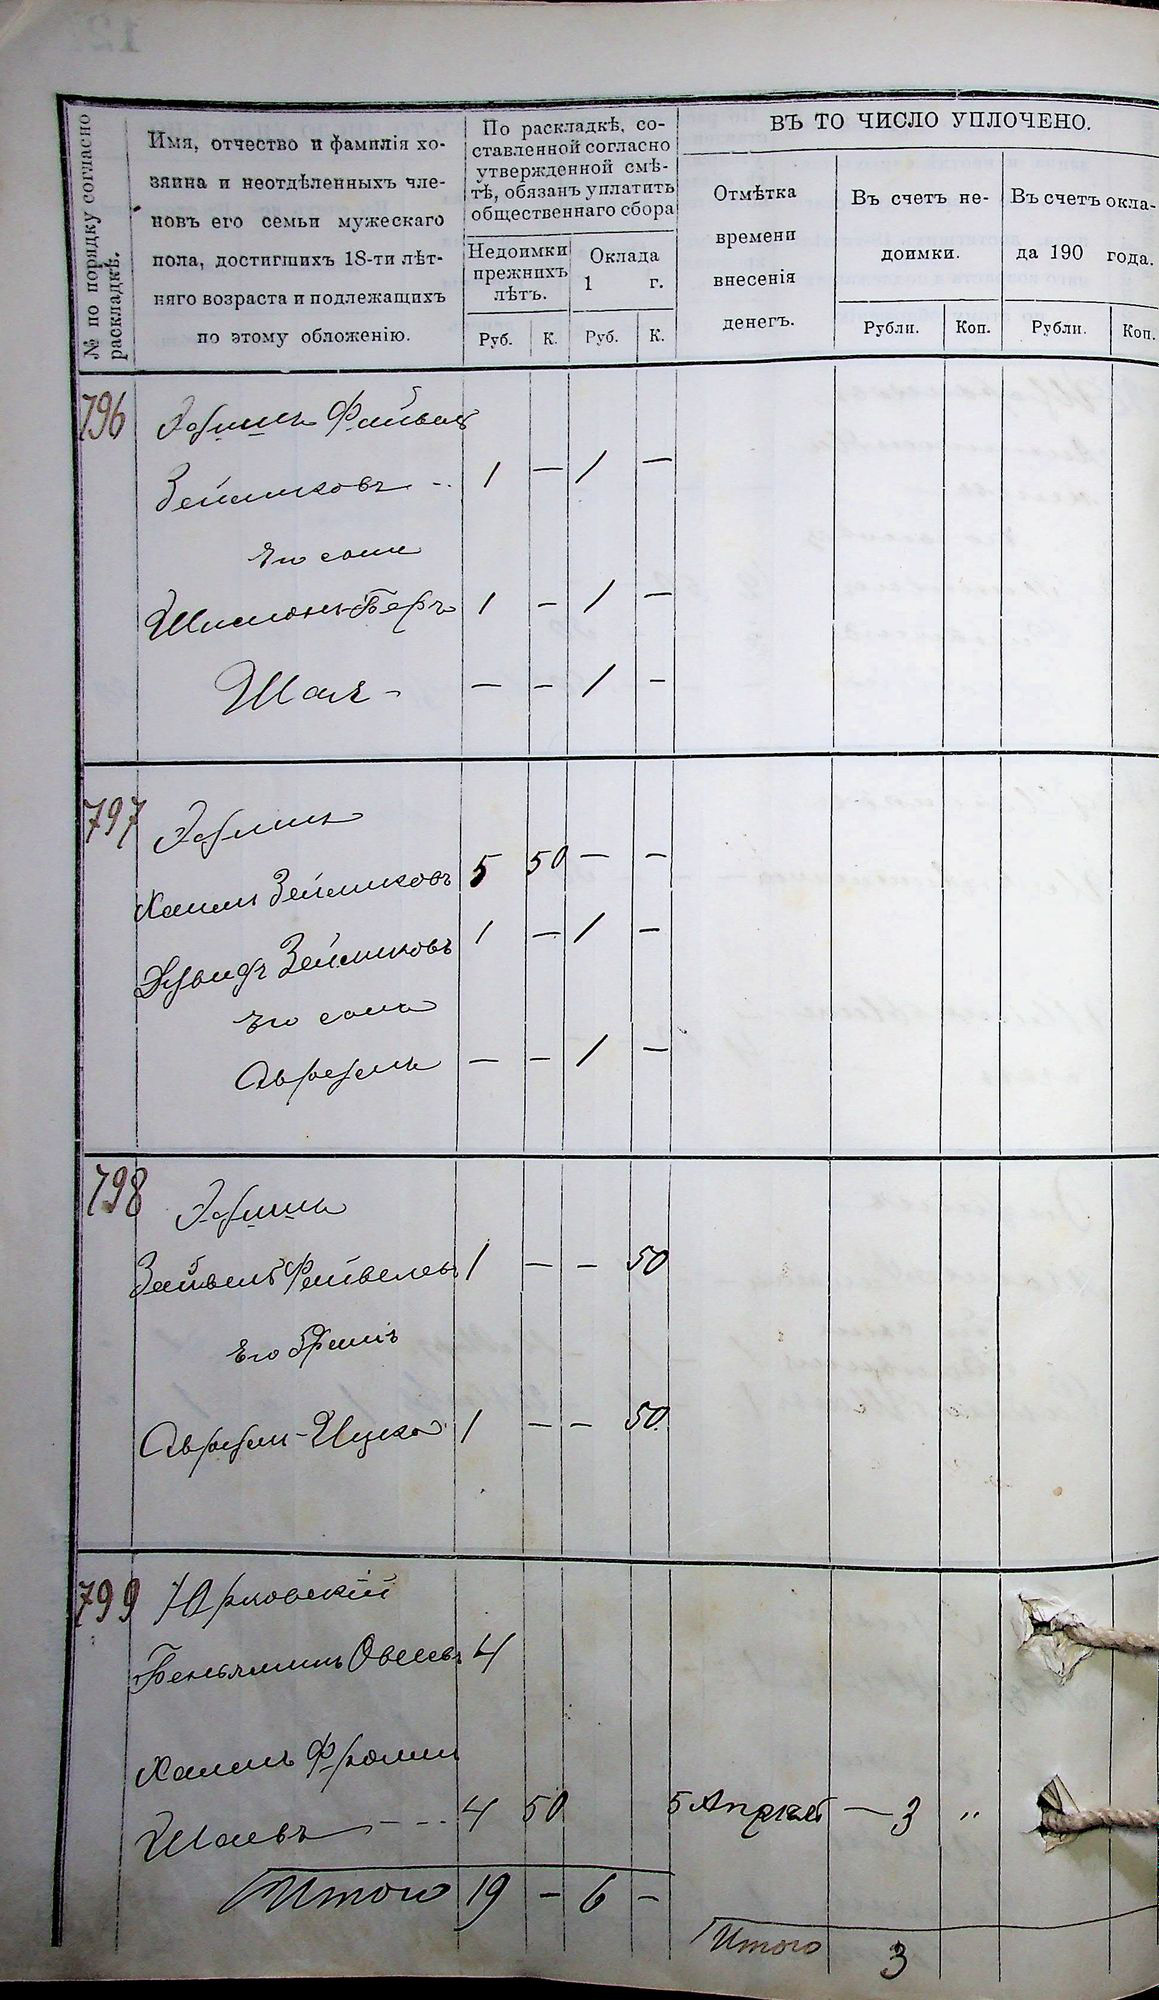 № по порядку согласно
раскладкѣ.
Имя, отчество и фамилія хо-
зяина и неотдѣленныхъ чле-
новъ его семьи мужескаго
пола, достигшихъ 18-ти лѣт-
няго возраста и подлежащихъ
по этому обложенію.
По раскладкѣ, со-
ставленной согласно
утвержденной смѣ-
тѣ, обязанъ уплатить
общественнаго сбора
Недоимки
прежнихъ
лѣтъ.
Оклада
1 г.
Руб. К. Руб. К.
ВЪ ТО ЧИСЛО УПЛОЧЕНО.
Отмѣтка
времени
внесенія
денегъ.
Въ счетъ не-
доимки.
Въ счетъ окла-
да 190 года.
Рубли. Коп. Рубли. Коп.
796
Зейликовъ 1 — 1 —
Его сыны
Шимонъ-Беръ 1 — 1 —
Шая — — 1 —
797
Хаимъ Зейликовъ 5 50 — —
Зейликовъ 1 — 1 —
Его сынъ
— — 1 —
798
Файвелевъ 1 — — 50
Его братъ
Ицко 1 — — 50
799
Беньяминъ 4
Хаимъ
4 50 5 — 3 "
Итого 19 — 6 —
Итого 3